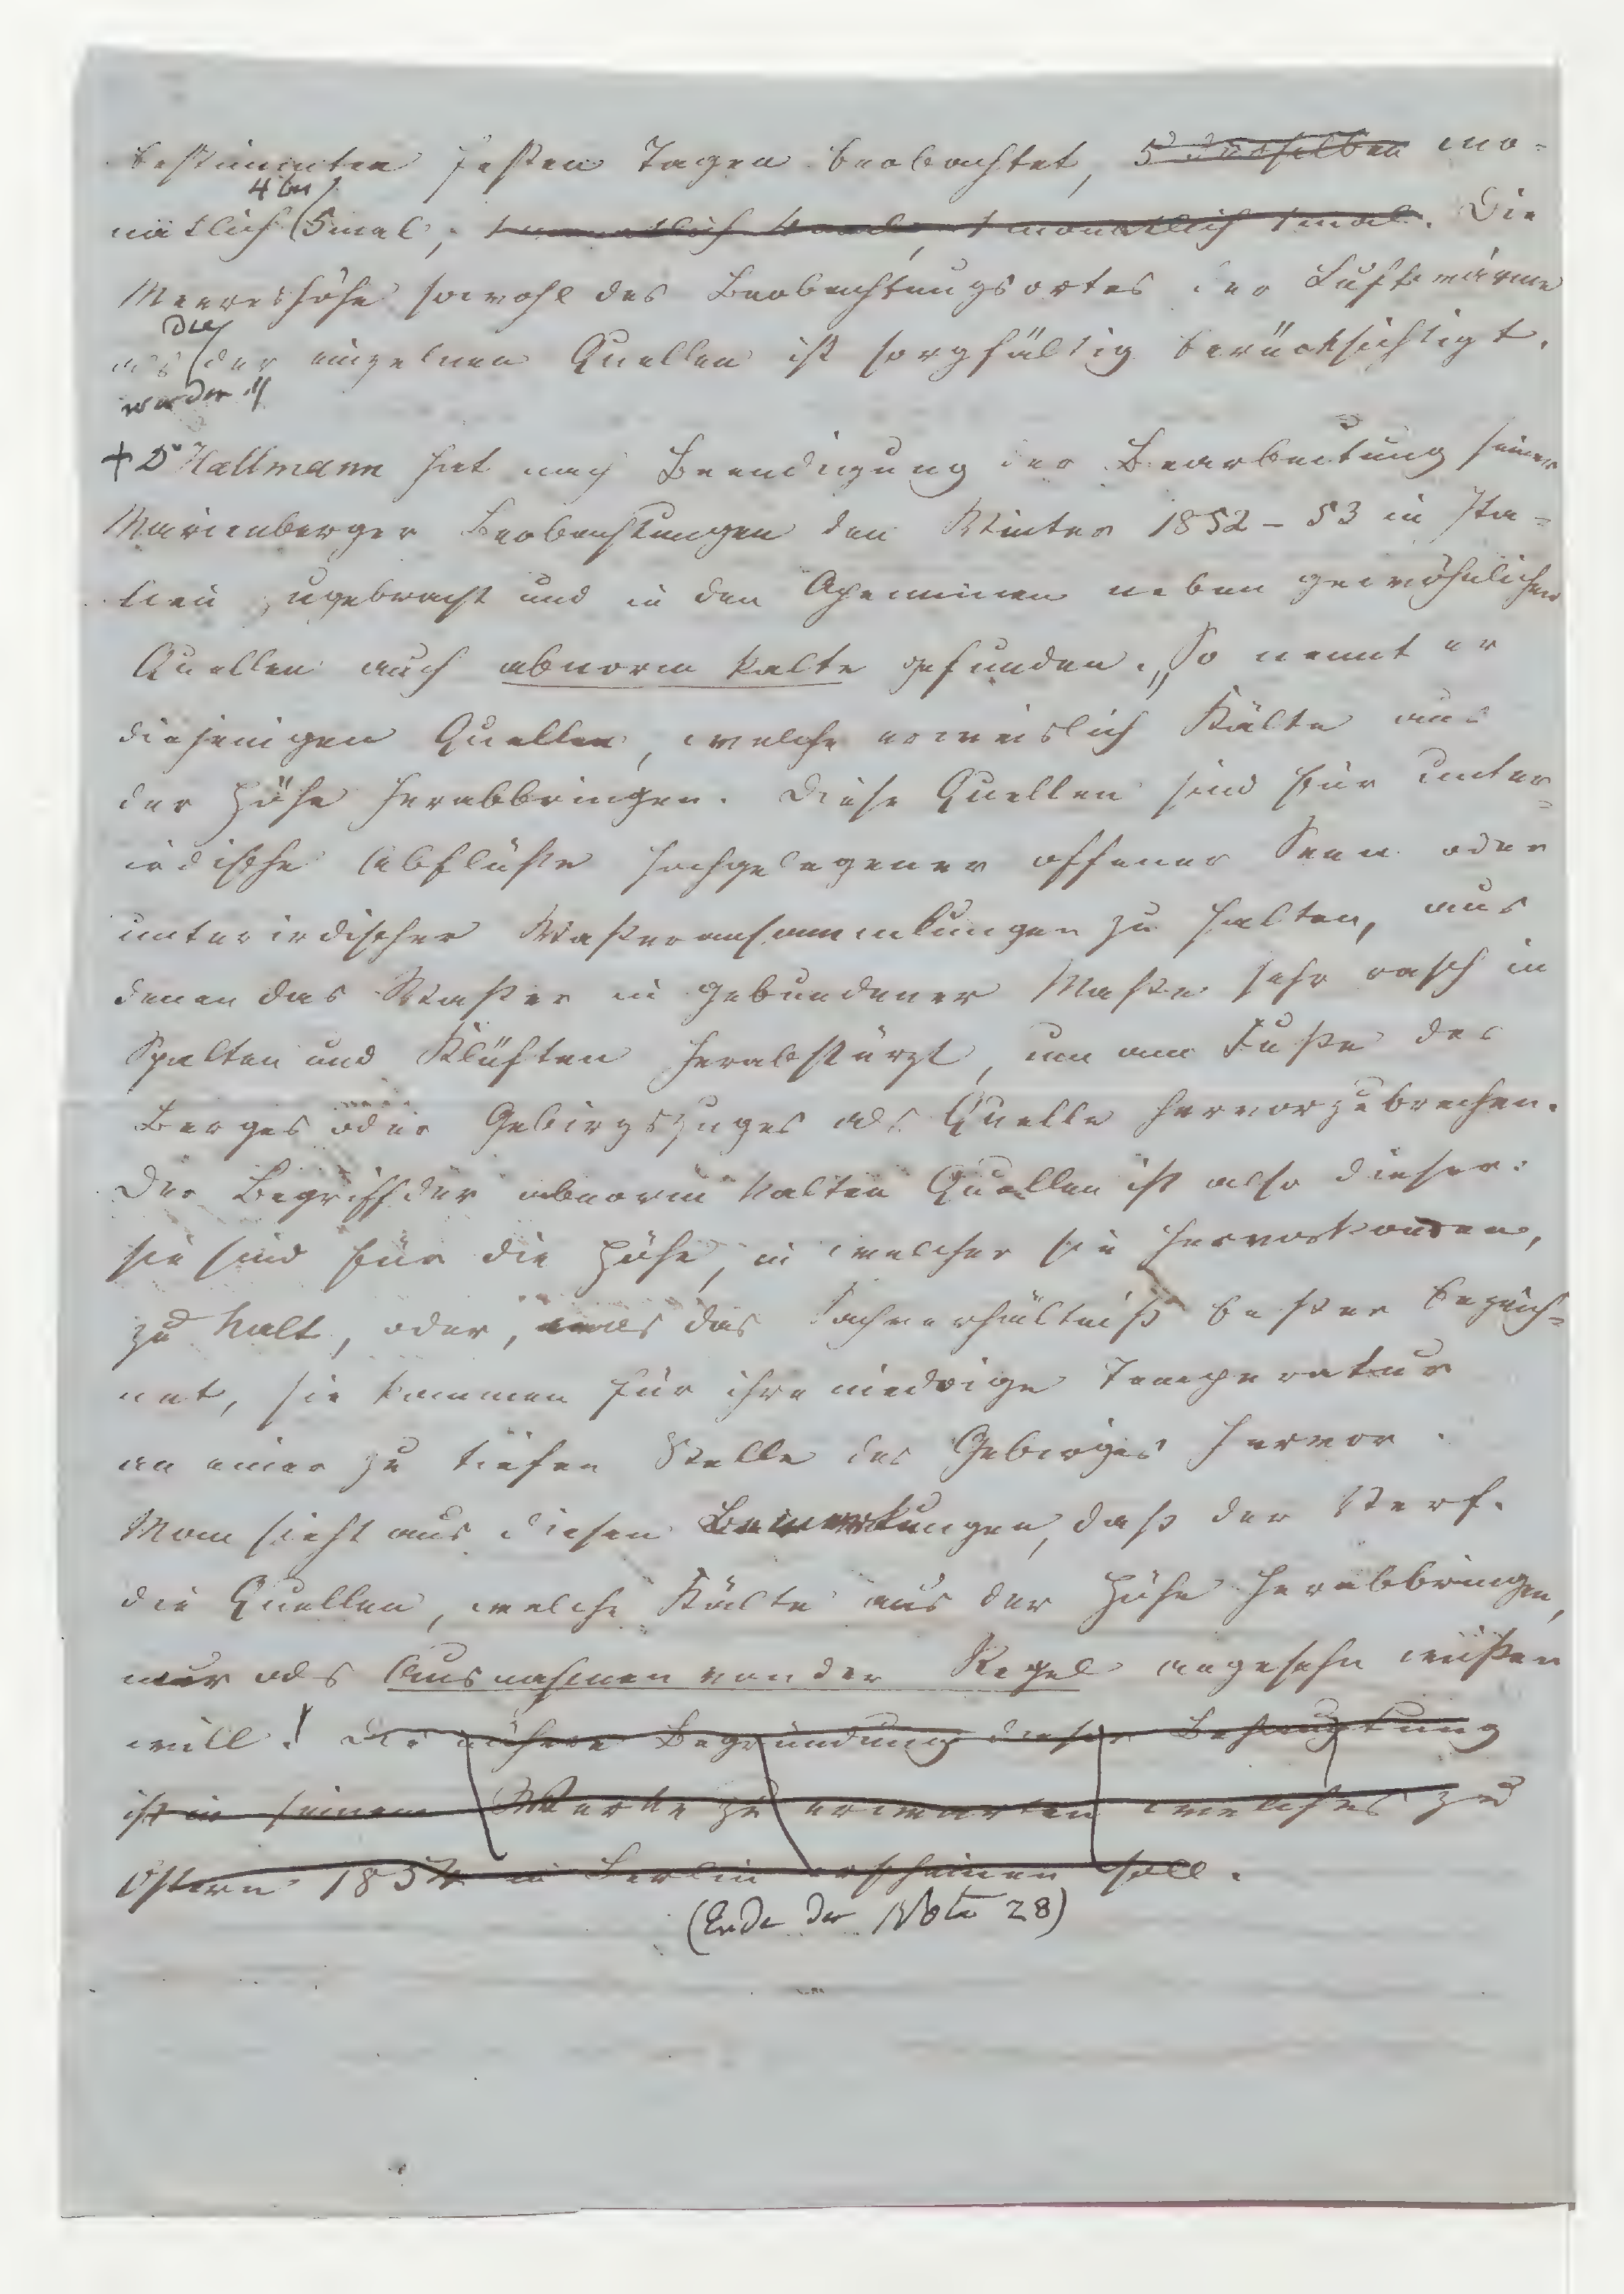 bestimmten festen Tagen beobachtet, 5 derselben mo-
4 bis
natlich 5mal, 1 monatlich 4mal, 1 monatlich 1mal. Die
Meereshöhe sowohl des Beobachtungsortes der Luftwärme
die
als der einzelnen Quellen ist sorgfältig berücksichtigt.
worden
+ Dr Hallmann hat nach Beendigung der Bearbeitung seiner
Marienberger Beobachtungen den Winter 1852-53 in Ita-
lien zugebracht und in den Apenninen neben gewöhnlichen
Quellen auch abnorm kalte gefunden. „So nennt er
diejenigen Quellen, welche erweislich Kälte aus
der Höhe herabbringen. Diese Quellen sind für unter-
irdische Abflüße hochgelegener offener Seen oder
unterirdischer Waßeransammlungen zu halten, aus
denen das Waßer in gebundener Maße sehr rasch in
Spalten und Klüften herabstürzt, um am Fuße des
Berges oder Gebirgszuges als Quelle hervorzubrechen.
Der Begriff der abnorm kalten Quellen ist also dieser:
sie sind für die Höhe, in welcher sie hervorkommen,
zu kalt, oder, was das Sachverhältniß beßer bezeich-
net, sie kommen für ihre niedrige Temperatur
an einer zu tiefen Stelle des Gebirges hervor.
Man sieht aus diesen Bemerkungen, daß der Verf.
die Quellen, welche Kälte aus der Höhe herabbringen,
nur als Ausnahmen von der Regel angesehn wißen
will! Die nähere Begründung dieser Behauptung
ist in seinem Werke zu erwarten welches zu
Ostern 1854 in Berlin erscheinen soll.
(Ende der Note 28)